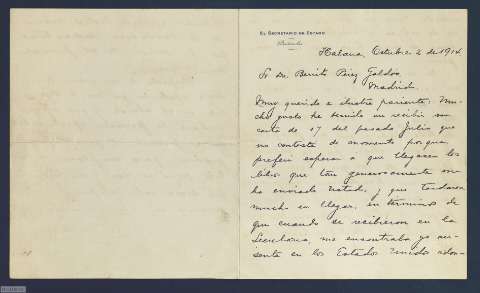 EL SECRETARIO DE ESTADO
Privada
Habana, Octubre 2 de 1914
Sr Dn Benito Pérez Galdós
Madrid.
Muy querido e ilustre pariente: Mu-
cho gusto he tenido en recibir su
carta de 17 del pasado Julio que
no contesté de momento porque
preferí esperar a que llegaran los
libros que tan generosamente me
ha enviado Usted, y que tardaron
mucho en llegar, en términos de
que cuando se recibieron en la
Secretaría, me encontraba yo au-
sente en los Estados Unidos adon-